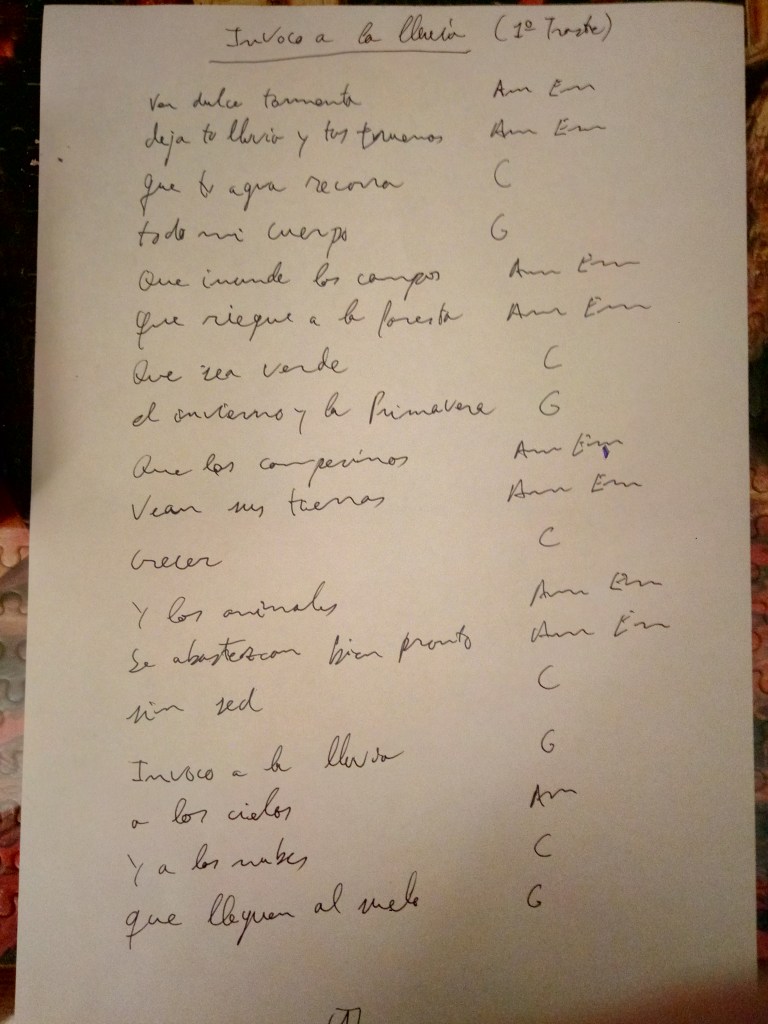 Invoco a la lluvia (1º Traste)
ven dulce tormenta Am Em
deja tu lluvia y tus truenos Am Em
que tu agua recorra C
todo mi cuerpo G
Que inunde los campos Am Em
que riegue a la foresta Am Em
Que sea verde C
el invierno y la Primavera G
Que los campesinos Am Em
Vean sus tierras Am Em
crecer C
Y los animales Am Em
Se abastezcan bien pronto Am Em
sin sed C
Invoco a la lluvia G
a los cielos Am
Y a las nubes C
que lleguen al suelo G